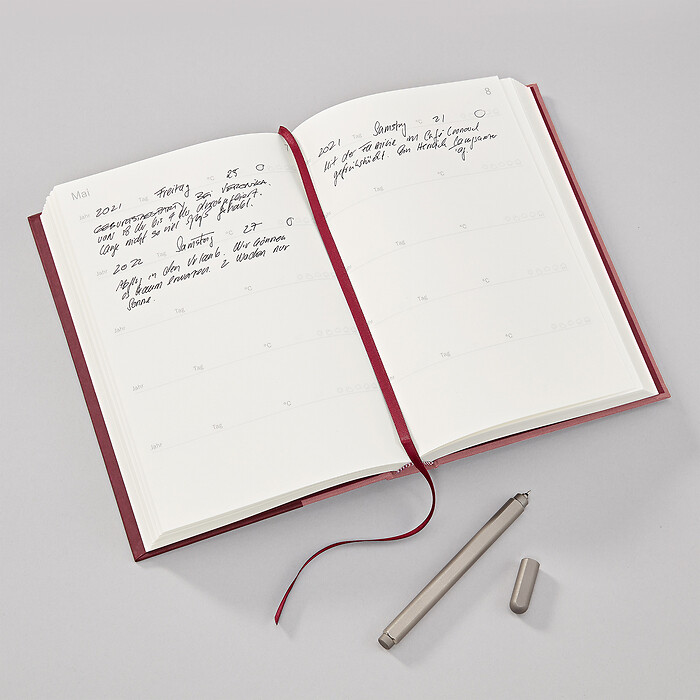 Mai
Jahr 2021 Freitag 25
GEBURTSTAGSPARTY BEI VERONIKA.
von 18 Uhr bis 4 Uhr durchgefeiert.
Lange nicht so viel Spaß gehabt.
Jahr 2022 Samstag 27
Abflug in den Urlaub. Wir können
es kaum erwarten. 2 Wochen nur
Sonne.
Jahr Tag °C
Jahr Tag °C
Jahr Tag °C
8
2021 Samstag 21
Mit der Familie im Café Leonard
gefrühstückt. Ein
Tag °C
Tag °C
Tag °C
Tag °C